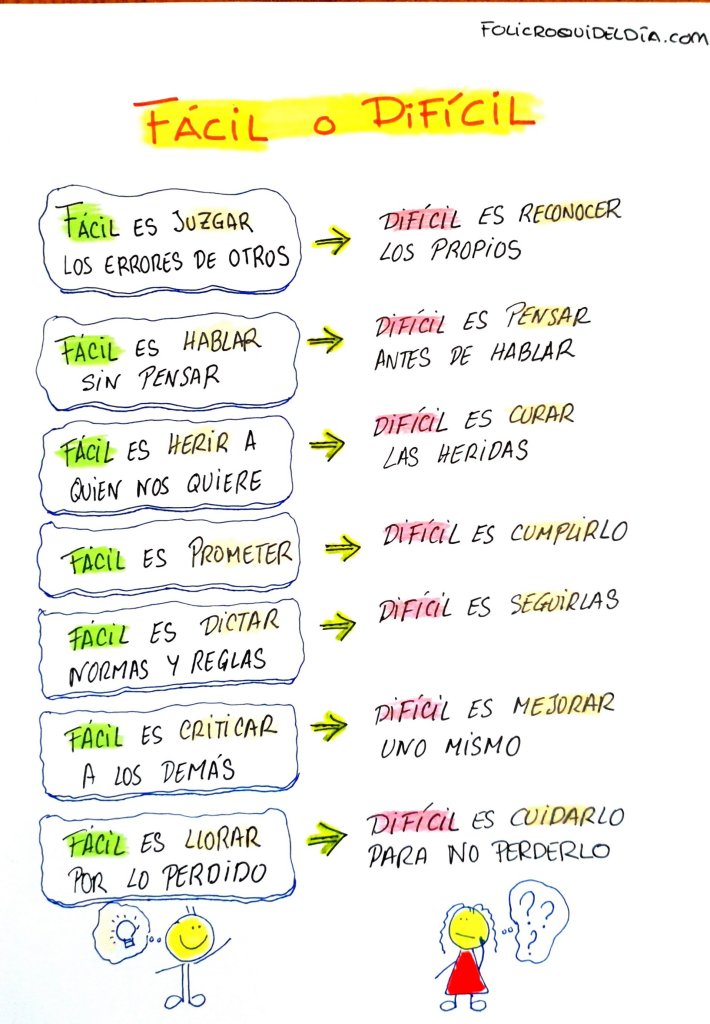 FOLICROQUIDELDÍA.COM
FÁCIL O DIFÍCIL
FÁCIL ES JUZGAR
LOS ERRORES DE OTROS
DIFÍCIL ES RECONOCER
LOS PROPIOS
FÁCIL ES HABLAR
SIN PENSAR
DIFÍCIL ES PENSAR
ANTES DE HABLAR
FÁCIL ES HERIR A
QUIEN NOS QUIERE
DIFÍCIL ES CURAR
LAS HERIDAS
FÁCIL ES PROMETER
DIFÍCIL ES CUMPLIRLO
FÁCIL ES DICTAR
NORMAS Y REGLAS
DIFÍCIL ES SEGUIRLAS
FÁCIL ES CRITICAR
A LOS DEMÁS
DIFÍCIL ES MEJORAR
UNO MISMO
FÁCIL ES LLORAR
POR LO PERDIDO
DIFÍCIL ES CUIDARLO
PARA NO PERDERLO
? ? ?